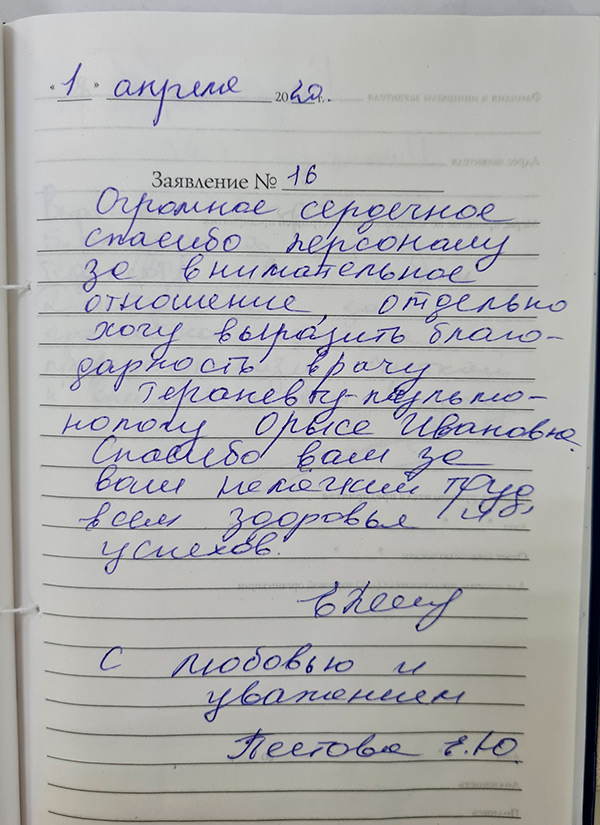 « 1 » апреля 2020 г.
Заявление № 16
Огромное сердечное
спасибо персоналу
за внимательное
отношение, отдельно
хочу выразить благо-
дарность врачу
терапевту-пульмо-
нологу Орысе Ивановне.
Спасибо вам за
ваш нелёгкий труд,
всем здоровья и
успехов.
С любовью и
уважением
Пестова Е.Ю.